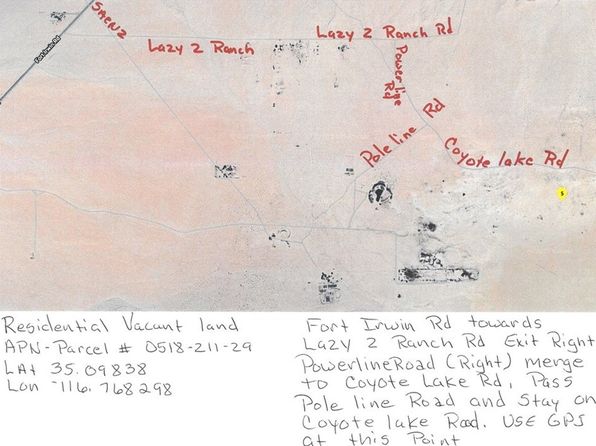 SAENZ
Fort Irwin Rd
Lazy 2 Ranch
Lazy 2 Ranch Rd
Powerline Rd
Pole line Rd
Coyote lake Rd
S
Residential Vacant land
APN-Parcel # 0518-211-29
LAt 35.09838
Lon -116.768298
Fort Irwin Rd towards
Lazy 2 Ranch Rd Exit Right
Powerline Road (Right) merge
to Coyote Lake Rd, Pass
Pole line Road and Stay on
Coyote lake Road. USE GPS
at this Point